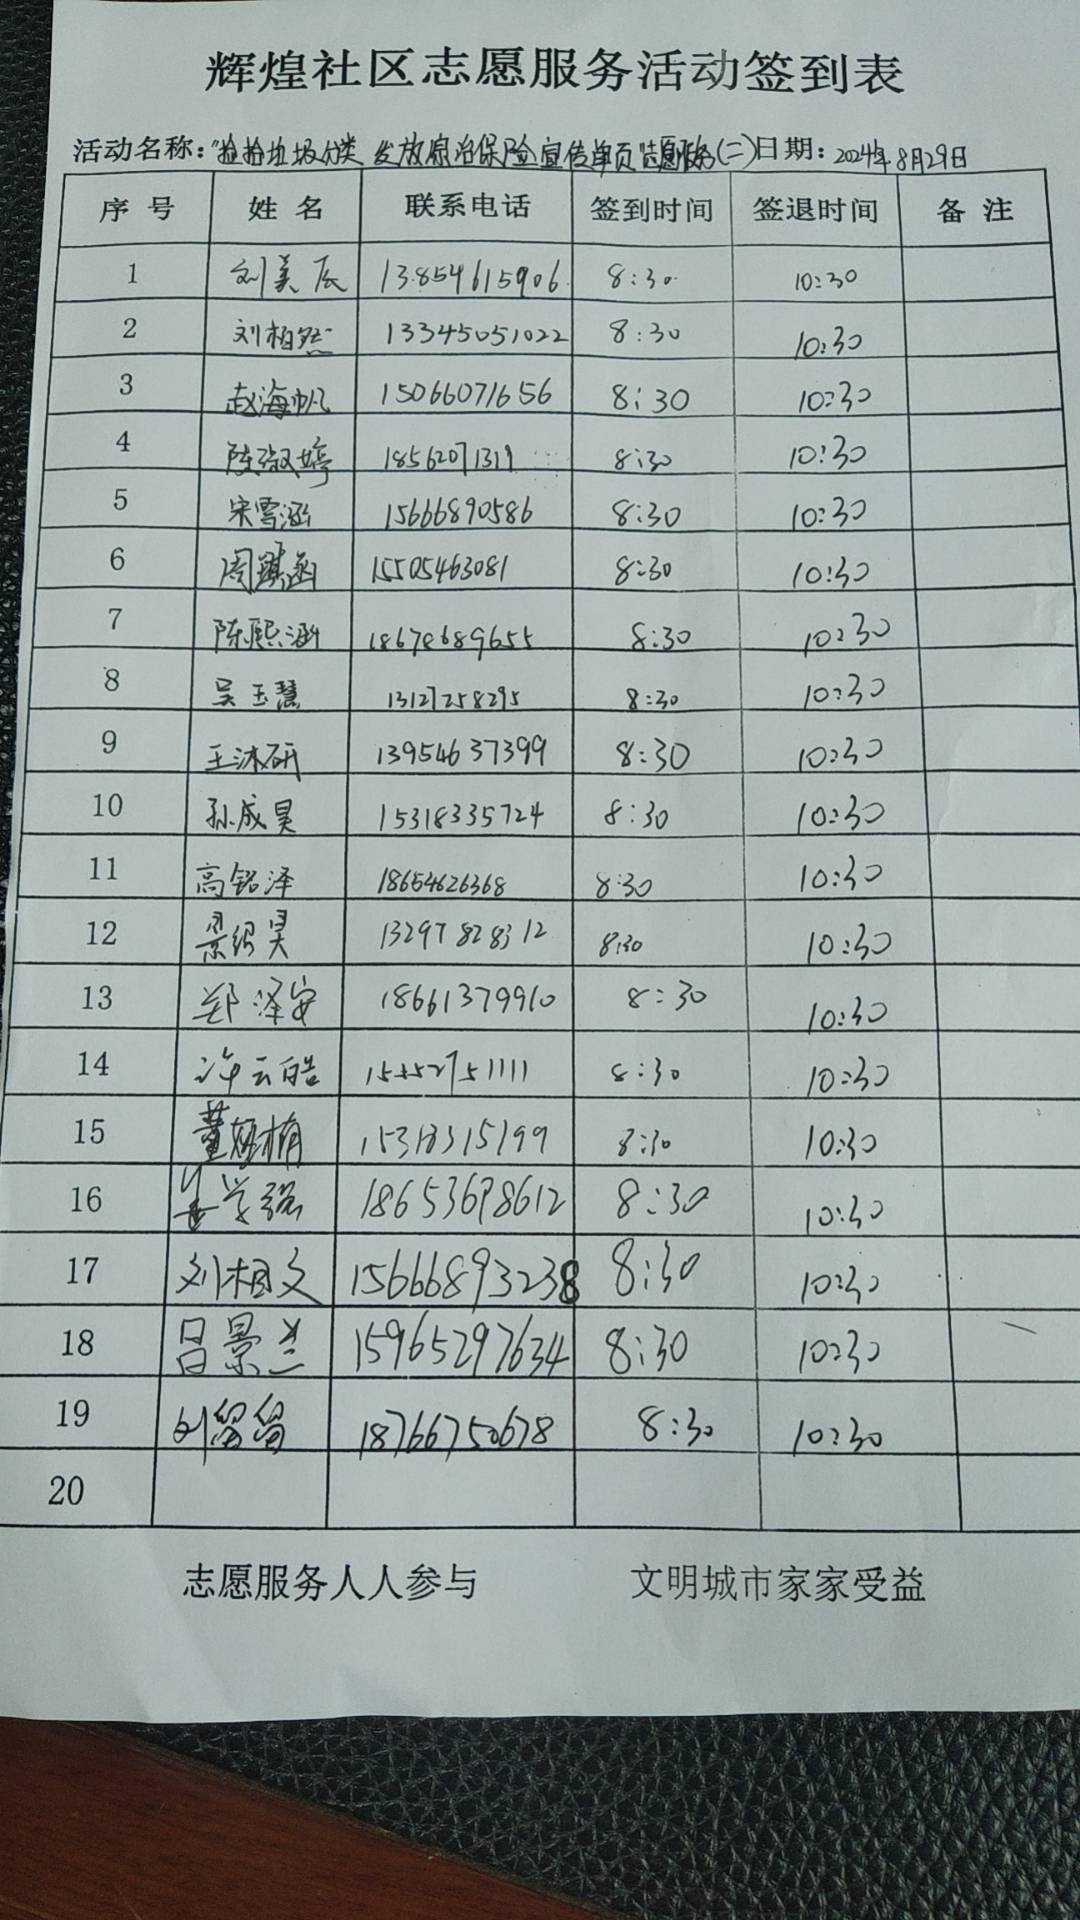 辉煌社区志愿服务活动签到表
活动名称：“捡拾垃圾分类 发放原治保险宣传单页”志愿服务（二）日期：2024年8月29日
序号 姓名 联系电话 签到时间 签退时间 备注
1 刘美辰 13854615906 8:30 10:30
2 刘柏然 13345051022 8:30 10:30
3 赵海帆 15066071656 8:30 10:30
4 陈淑婷 18562071319 8:30 10:30
5 宋雪涵 15666890586 8:30 10:30
6 周鎮函 15505463081 8:30 10:30
7 陈熙涵 18678689655 8:30 10:30
8 吴玉慧 13127258295 8:30 10:30
9 王沐研 13954637399 8:30 10:30
10 孙成昊 15318335724 8:30 10:30
11 高铭泽 18654626368 8:30 10:30
12 景绍昊 13297828312 8:30 10:30
13 郑泽安 18661379910 8:30 10:30
14 许云皓 15552751111 8:30 10:30
15 董 15318315199 8:30 10:30
16 姜学强 18653698612 8:30 10:30
17 刘相文 15666893238 8:30 10:30
18 吕景兰 15965297634 8:30 10:30
19 刘留留 18766750678 8:30 10:30
20
志愿服务人人参与 文明城市家家受益